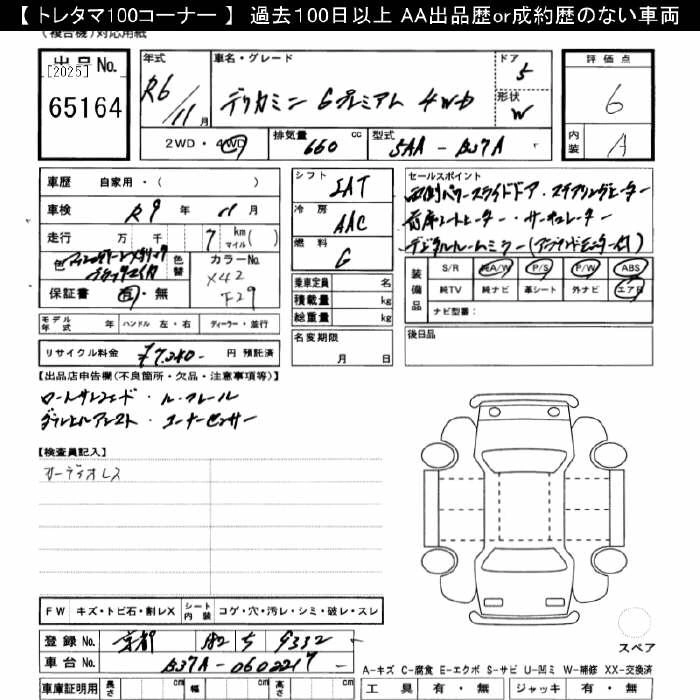 【 トレタマ100コーナー 】 過去100日以上 AA出品歴or成約歴のない車両
(複合機)対応用紙
出品No.
[2025]
65164
年式
R6/11月
車名・グレード
デリカミニ Gプレミアム 4WD
ドア
5
形状
W
2WD・4WD
排気量
660 cc
型式
5AA-B37A
評価点
6
内装
A
車歴 自家用・( )
車検 R9 年 11月
走行 万 千 7 km マイル( )
色
色替
カラーNo.
X42
F29
保証書 有・無
シフト
IAT
冷房
AAC
燃料
G
乗車定員 名
積載量 kg
総重量 kg
セールスポイント
両側パワースライドドア・ステアリングヒーター
前席シートヒーター・サーキュレーター
デジタルルームミラー
装備品
S/R 純A/W P/S P/W ABS
純TV 純ナビ 革シート 外ナビ エアB
ナビ型番:
モデル年式 年 ハンドル 左・右 ディーラー・並行
名変期限
月 日
後日品
リサイクル料金 ¥7,280- 円 預託済
【出品店申告欄(不良箇所・欠品・注意事項等)】
ルーフレール
コーナーセンサー
【検査員記入】
オーディオレス
FW キズ・トビ石・割レX
シート内装 コゲ・穴・汚レ・シミ・破レ・スレ
登録No. 京都 582 ち 9332
車台No. B37A-0602217
車庫証明用 長さ cm 幅 cm 高さ cm
スペア
A-キズ C-腐食 E-エクボ S-サビ U-凹ミ W-補修 XX-交換済
工具 有・無 ジャッキ 有・無